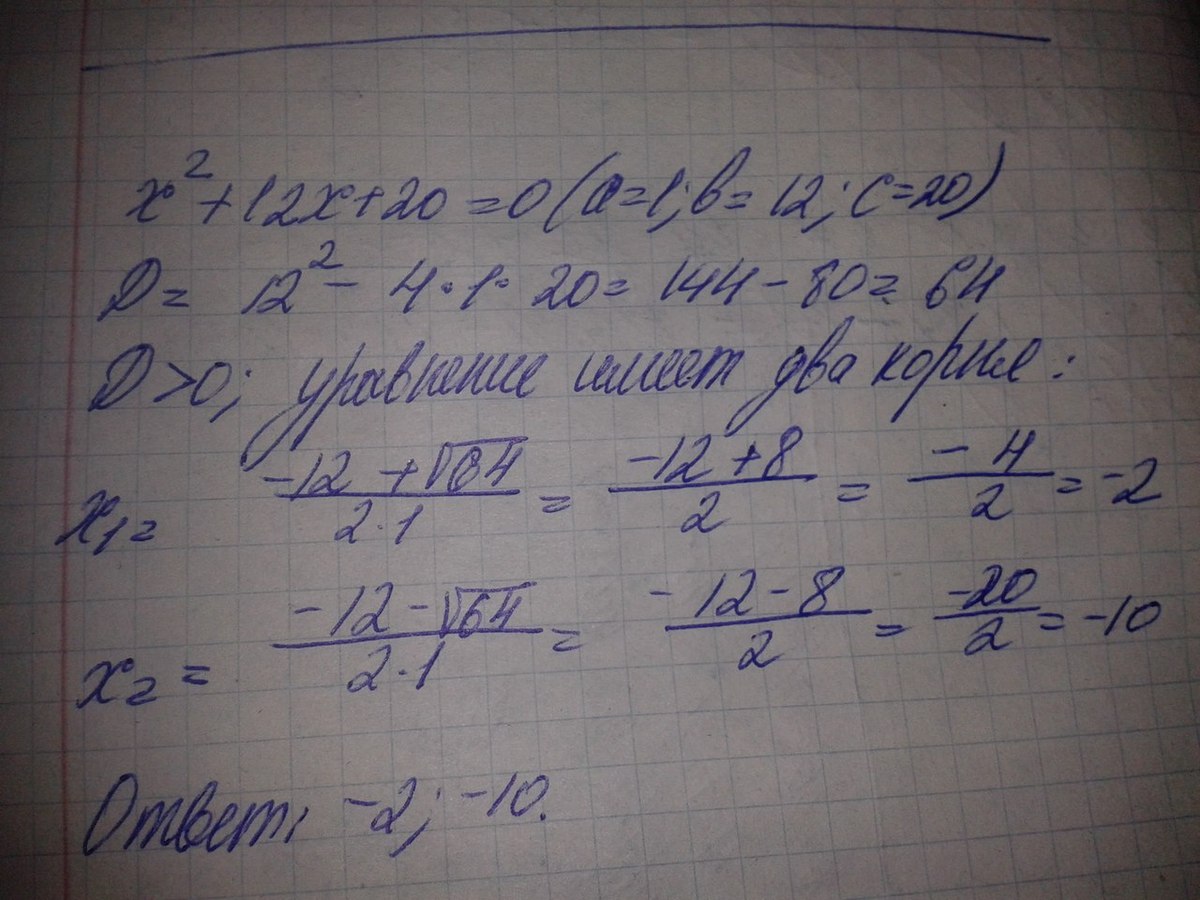 x² + 12x + 20 = 0 (a = 1; в = 12; c = 20)
D = 12² - 4 · 1 · 20 = 144 - 80 = 64
D > 0; уравнение имеет два корня:
x₁ = (-12 + √64)/(2 · 1) = (-12 + 8)/2 = (-4)/2 = -2
x₂ = (-12 - √64)/(2 · 1) = (-12 - 8)/2 = (-20)/2 = -10
Ответ: -2; -10.